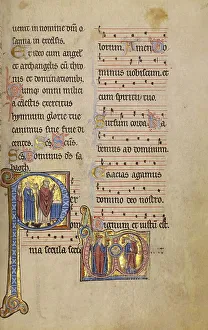 uenit in nomine dñi o
sanna in excelsis.
Et ideo cum angelis
et archangelis cum thro
nis et dominationibus.
cumque omni militia
celestis exercitus
hymnum glorie tue
canimus sine fine di
centes. Scs Scs
Scs Dominus ds sa
nia secula secu
lorum. Amen. Do
minus uobiscum. et
cum spiritu tuo.
Sursum corda. ha
bemus ad dominum.
Gracias agamus
domino deo nostro.
Dignum et iustum est.